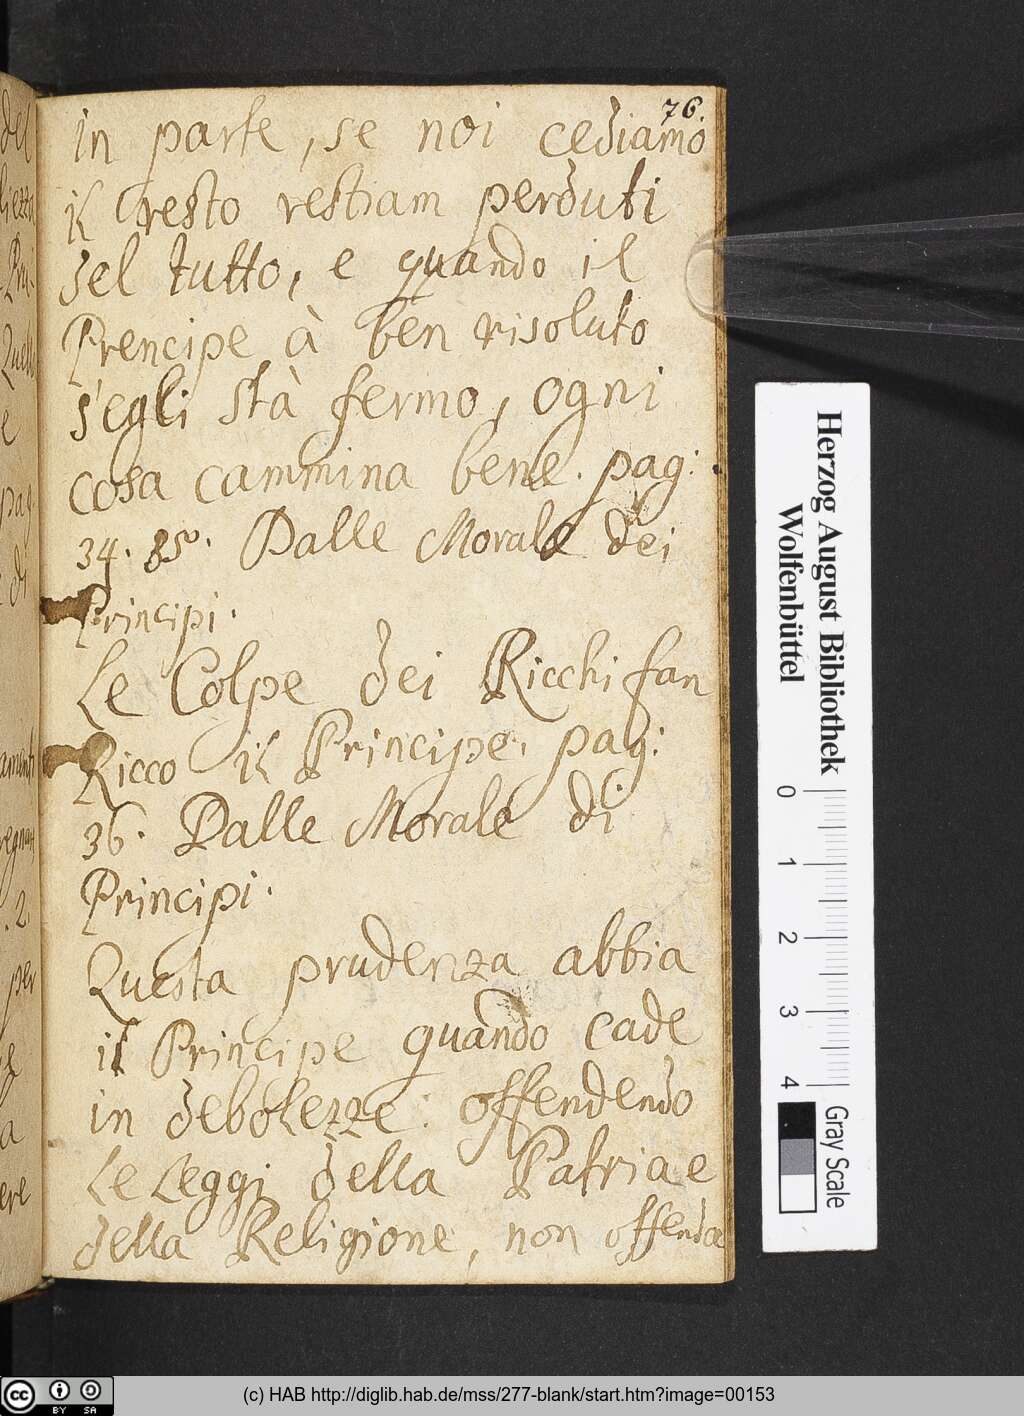 76.
in parte, se noi cediamo
il resto restiam perduti
del tutto, e quando il
Prencipe à ben risoluto
s'egli stà fermo, ogni
cosa cammina bene. pag:
34. 35. Dalle Morale dei
Principi.
Le Colpe dei Ricchi fan
Ricco il Principe. pag:
36. Dalle Morale di
Principi.
Questa prudenza abbia
il Principe quando cade
in debolezze: offendendo
le leggi della Patria e
della Religione, non offenda
Herzog August Bibliothek
Wolfenbüttel
0 1 2 3 4
Gray Scale
cc BY SA
(c) HAB http://diglib.hab.de/mss/277-blank/start.htm?image=00153